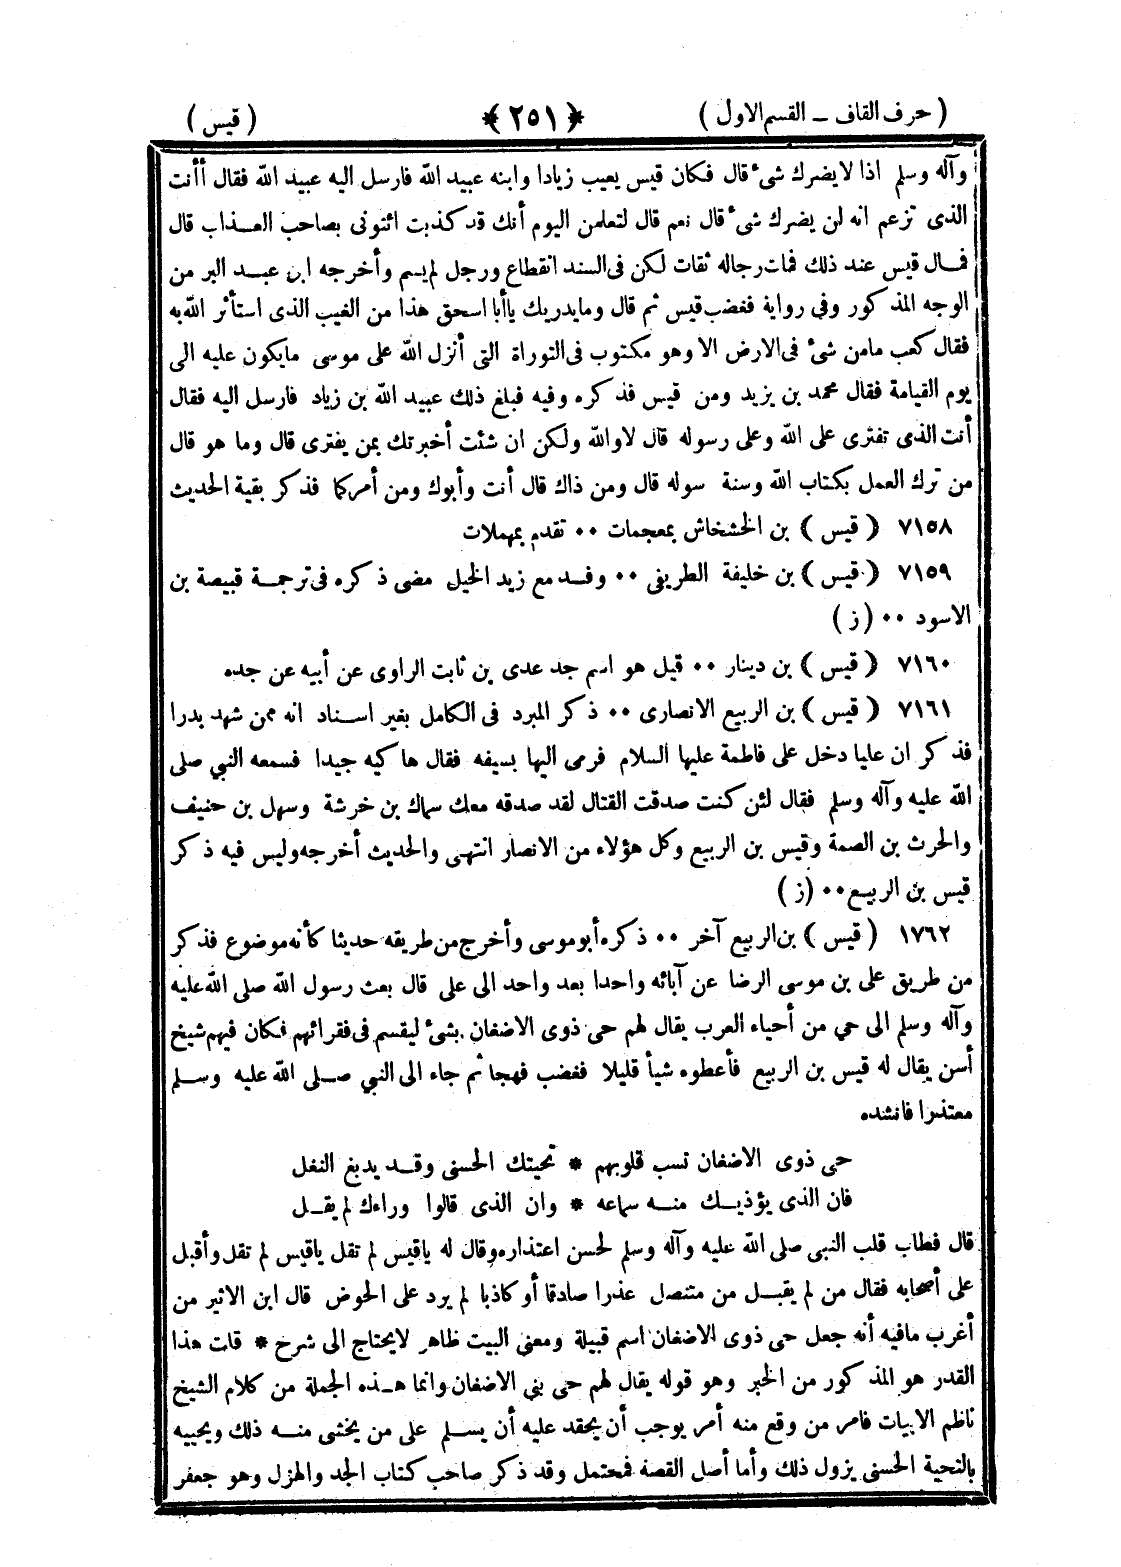 ( حرف القاف ــ القسم الاول ) ﴿ ٢٥١ ﴾ ( قيس )
وآله وسلم اذا لا يضرك شئ قال فكان قيس يعيب زيادا وابنه عبيد الله فارسل اليه عبيد الله فقال أأنت
الذى تزعم انه لن يضرك شئ قال نعم قال لتعلمن اليوم أنك قد كذبت ائتونى بصاحب العـذاب قال
فمـال قيس عند ذلك فمات رجاله ثقات لكن فى السند انقطاع ورجل لم يسم وأخرجه ابن عبـد البر من
الوجه المذكور وفى رواية فغضب قيس ثم قال وما يدريك يا أبا اسحق هذا من الغيب الذى استأثر الله به
فقال كعب مامن شئ فى الارض الا وهو مكتوب فى التوراة التى أنزل الله على موسى مايكون عليه الى
يوم القيامة فقال محمد بن يزيد ومن قيس فذكره وفيه فبلغ ذلك عبيد الله بن زياد فارسل اليه فقال
أنت الذى تفترى على الله وعلى رسوله قال لا والله ولكن ان شئت أخبرتك بمن يفترى قال وما هو قال
من ترك العمل بكتاب الله وسنة سوله قال ومن ذاك قال أنت وأبوك ومن أمركما فذكر بقية الحديث
٧١٥٨ ( قيس ) بن الخشخاش بمعجمات ٠٠ تقدم بمهملات
٧١٥٩ ( قيس ) بن خليفة الطريفى ٠٠ وفـد مع زيد الخيل مضى ذكره فى ترجمـة قبيصة بن
الاسود ٠٠ ( ز )
٧١٦٠ ( قيس ) بن دينار ٠٠ قيل هو اسم جد عدى بن ثابت الراوى عن أبيه عن جده
٧١٦١ ( قيس ) بن الربيع الانصارى ٠٠ ذكر المبرد فى الكامل بغير اسـناد انه ممن شهد بدرا
فذكر ان عليا دخل على فاطمة عليها السلام فرمى اليها بسيفه فقال هاكيه جيدا فسمعه النبي صلى
الله عليه وآله وسلم فقال لئن كنت صدقت القتال لقد صدقه معك سماك بن خرشة وسهل بن حنيف
والحرث بن الصمة وقيس بن الربيع وكل هؤلاء من الانصار انتهى والحديث أخرجه وليس فيه ذكر
قيس بن الربيـع ٠٠ ( ز )
١٧٦٢ ( قيس ) بن الربيع آخر ٠٠ ذكره أبو موسى وأخرج من طريقه حديثا كأنه موضوع فذكر
من طريق على بن موسى الرضا عن آبائه واحدا بعد واحد الى على قال بعث رسول الله صلى الله عليه
وآله وسلم الى حي من أحياء العرب يقال لهم حى ذوى الاضغان بشئ ليقسم فى فقرائهم فكان فيهم شيخ
أسن يقال له قيس بن الربيع فأعطوه شيأ قليلا فغضب فهجا ثم جاء الى النبي صـلى الله عليه وسـلم
معتذرا فانشده
حى ذوى الاضغان تسب قلوبهم * تحيتك الحسنى وقـد يدبغ النغل
فان الذى يؤذيـك منـه سماعه * وان الذى قالوا وراءك لم يقـل
قال فطاب قلب النبى صلى الله عليه وآله وسلم لحسن اعتذاره وقال له ياقيس لم تقل ياقيس لم تقل وأقبل
على أصحابه فقال من لم يقبـل من متنصل عذرا صادقا أو كاذبا لم يرد على الحوض قال ابن الاثير من
أغرب مافيه أنه جعل حى ذوى الاضغان اسم قبيلة ومعنى البيت ظاهر لايحتاج الى شرح * قات هذا
القدر هو المذكور من الخبر وهو قوله يقال لهم حى بنى الاضغان وانما هـذه الجملة من كلام الشيخ
ناظم الابيات فامر من وقع منه أمر يوجب أن يحقد عليه أن يسـلم على من يخشى منـه ذلك ويحييه
بالتحية الحسنى يزول ذلك وأما أصل القصة فمحتمل وقد ذكر صاحب كتاب الجد والهزل وهو جعفر